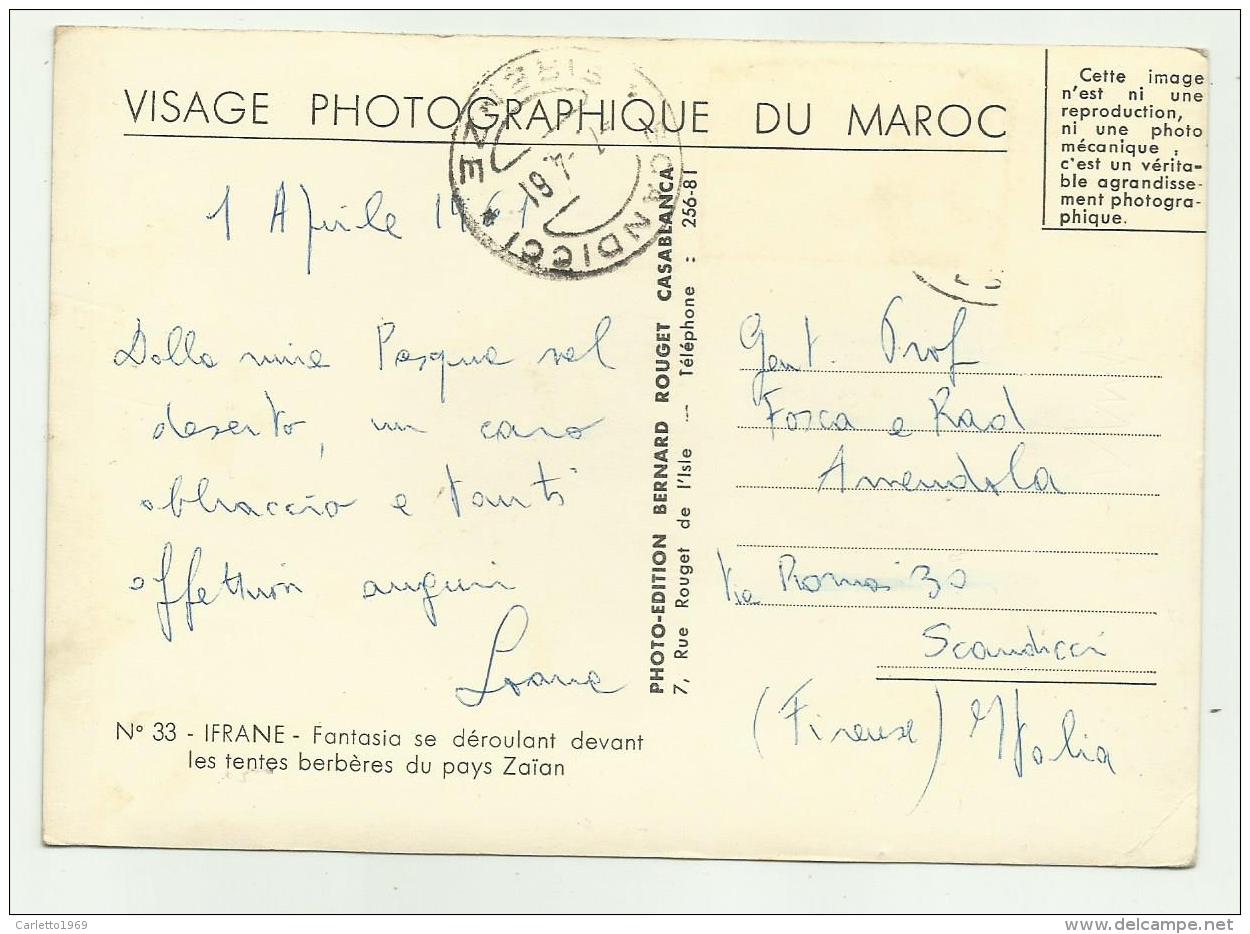 VISAGE PHOTOGRAPHIQUE DU MAROC
Cette image
n'est ni une
reproduction,
ni une photo
mécanique,
c'est un vérita-
ble agrandisse-
ment photogra-
phique.
SCANDICCI * FIRENZE *
1 Aprile 1961
Dalla mia Pasqua nel
deserto, un caro
abbraccio e tanti
affettuosi auguri
N° 33 - IFRANE - Fantasia se déroulant devant
les tentes berbères du pays Zaïan
PHOTO-EDITION BERNARD ROUGET CASABLANCA
7, Rue Rouget de l'Isle -- Téléphone : 256-81
Gent. Prof
Fosca e Rad
Amendola
Via Roma 30
Scandicci
(Firenze) Italia
Carletto1969
delcampe.net